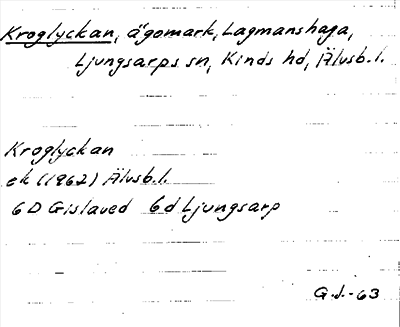 Kroglyckan, ägomark, Lagmanshaga,
Ljungsarps sn, Kinds hd, Älvsb.l.
Kroglyckan
ek (1962) Älvsb.l.
6D Gislaved 6d Ljungsarp
G.J.-63